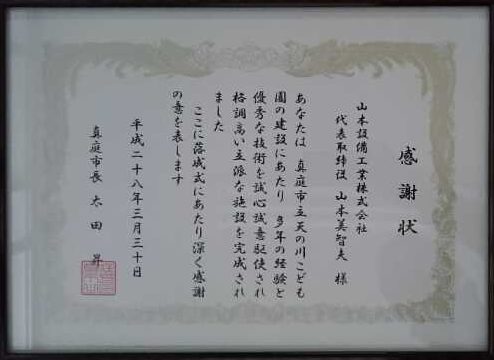 感謝状
山本設備工業株式会社
代表取締役 山本美智夫 様
あなたは 真庭市立天の川こども
園の建設にあたり 多年の経験と
優秀な技術を誠心誠意駆使され
格調高い立派な施設を完成され
ました
ここに落成式にあたり深く感謝
の意を表します
平成二十八年三月三十日
真庭市長 太田 昇